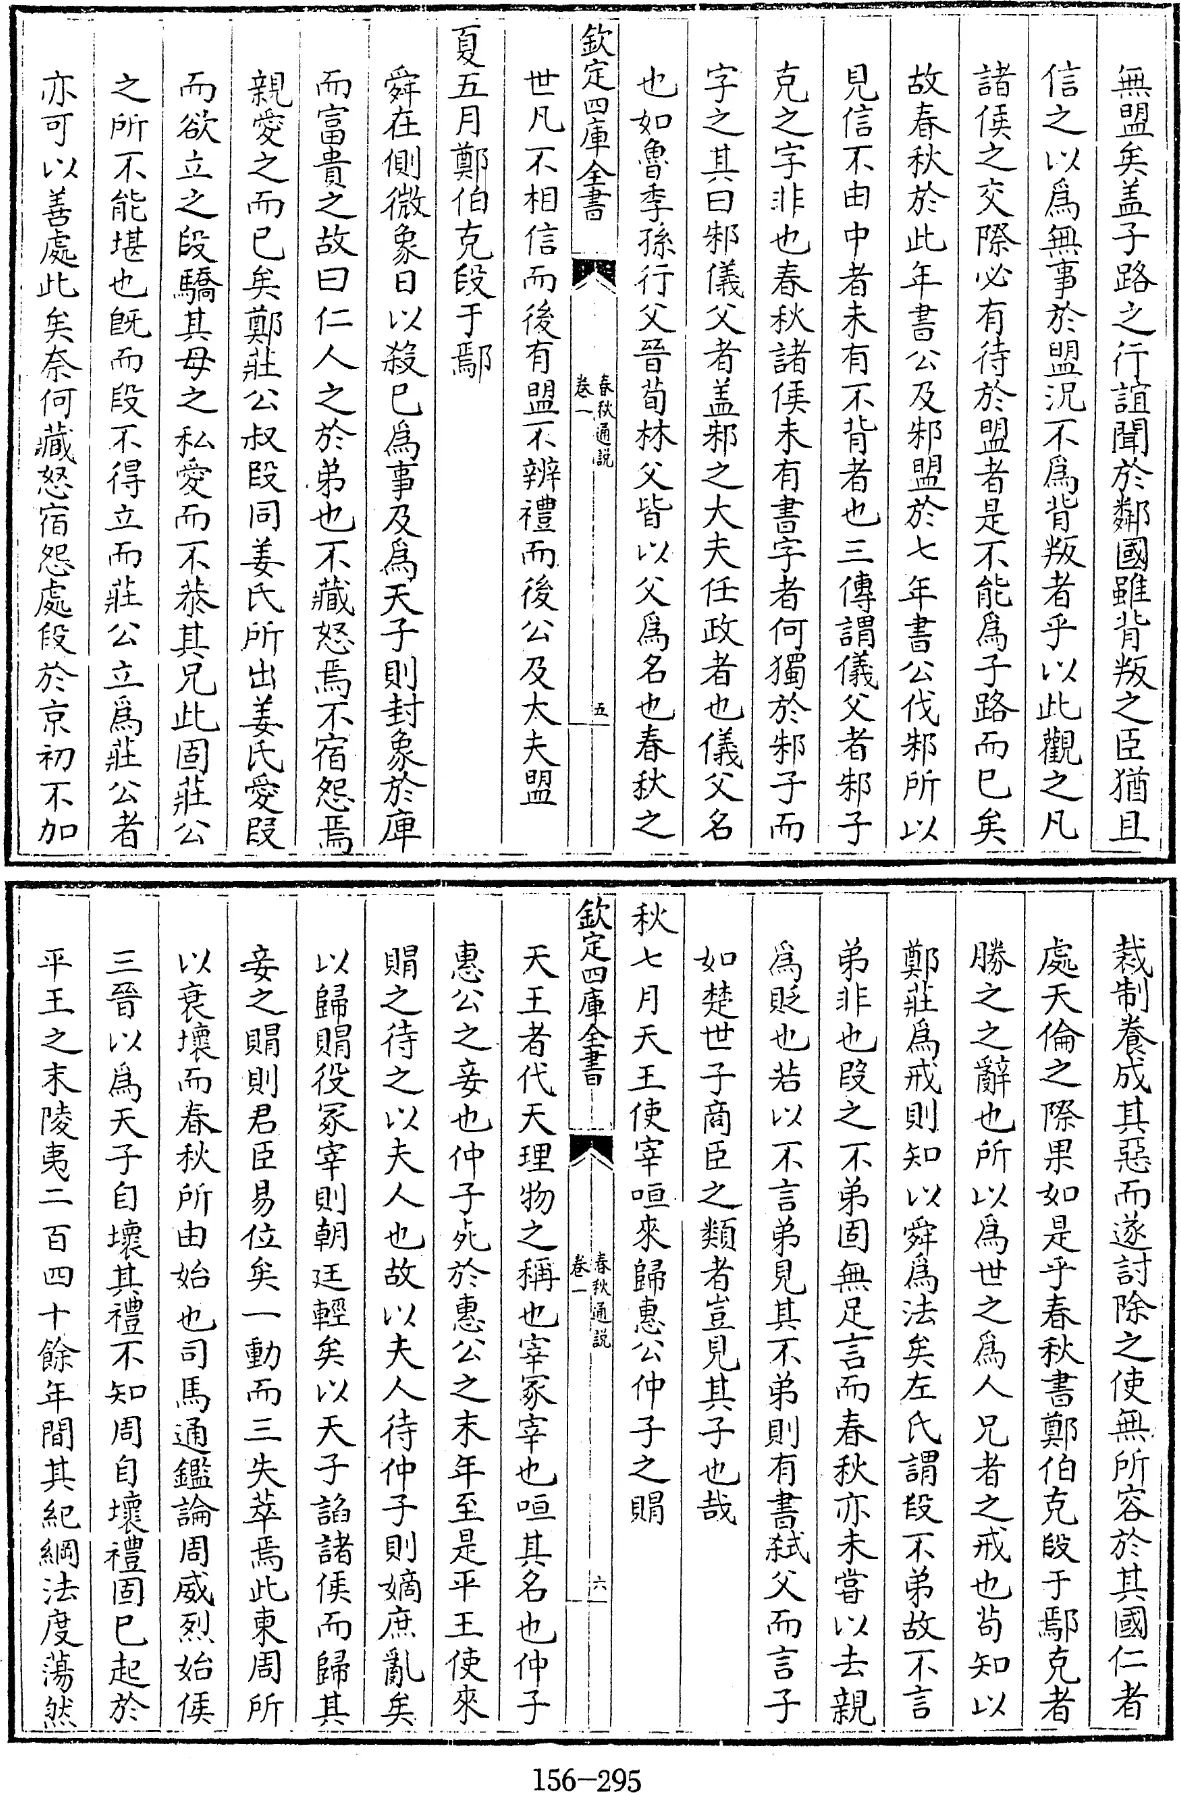 無盟矣盖子路之行誼聞於鄰國雖背叛之臣猶且
信之以爲無事於盟況不爲背叛者乎以此觀之凡
諸侯之交際必有待於盟者是不能爲子路而已矣
故春秋於此年書公及邾盟於七年書公伐邾所以
見信不由中者未有不背者也三傳謂儀父者邾子
克之字非也春秋諸侯未有書字者何獨於邾子而
字之其曰邾儀父者盖邾之大夫任政者也儀父名
也如魯季孫行父晉荀林父皆以父爲名也春秋之
欽定四庫全書
春秋通説
卷一
五
世凡不相信而後有盟不辨禮而後公及大夫盟
夏五月鄭伯克段于鄢
舜在側微象日以殺已爲事及爲天子則封象於庳
而富貴之故曰仁人之於弟也不藏怒焉不宿怨焉
親愛之而已矣鄭莊公叔段同姜氏所出姜氏愛段
而欲立之段驕其母之私愛而不恭其兄此固莊公
之所不能堪也旣而段不得立而莊公立爲莊公者
亦可以善處此矣奈何藏怒宿怨處段於京初不加
裁制養成其惡而遂討除之使無所容於其國仁者
處天倫之際果如是乎春秋書鄭伯克段于鄢克者
勝之之辭也所以爲世之爲人兄者之戒也茍知以
鄭莊爲戒則知以舜爲法矣左氏謂段不弟故不言
弟非也段之不弟固無足言而春秋亦未嘗以去親
爲貶也若以不言弟見其不弟則有書弑父而言子
如楚世子商臣之類者豈見其子也哉
秋七月天王使宰咺來歸惠公仲子之賵
欽定四庫全書
春秋通説
卷一
六
天王者代天理物之稱也宰冢宰也咺其名也仲子
惠公之妾也仲子死於惠公之末年至是平王使來
賵之待之以夫人也故以夫人待仲子則嫡庶亂矣
以歸賵役冢宰則朝廷輕矣以天子諂諸侯而歸其
妾之賵則君臣易位矣一動而三失萃焉此東周所
以衰壞而春秋所由始也司馬通鑑論周威烈始侯
三晉以爲天子自壞其禮不知周自壞禮固已起於
平王之末陵夷二百四十餘年間其紀綱法度蕩然
156-295